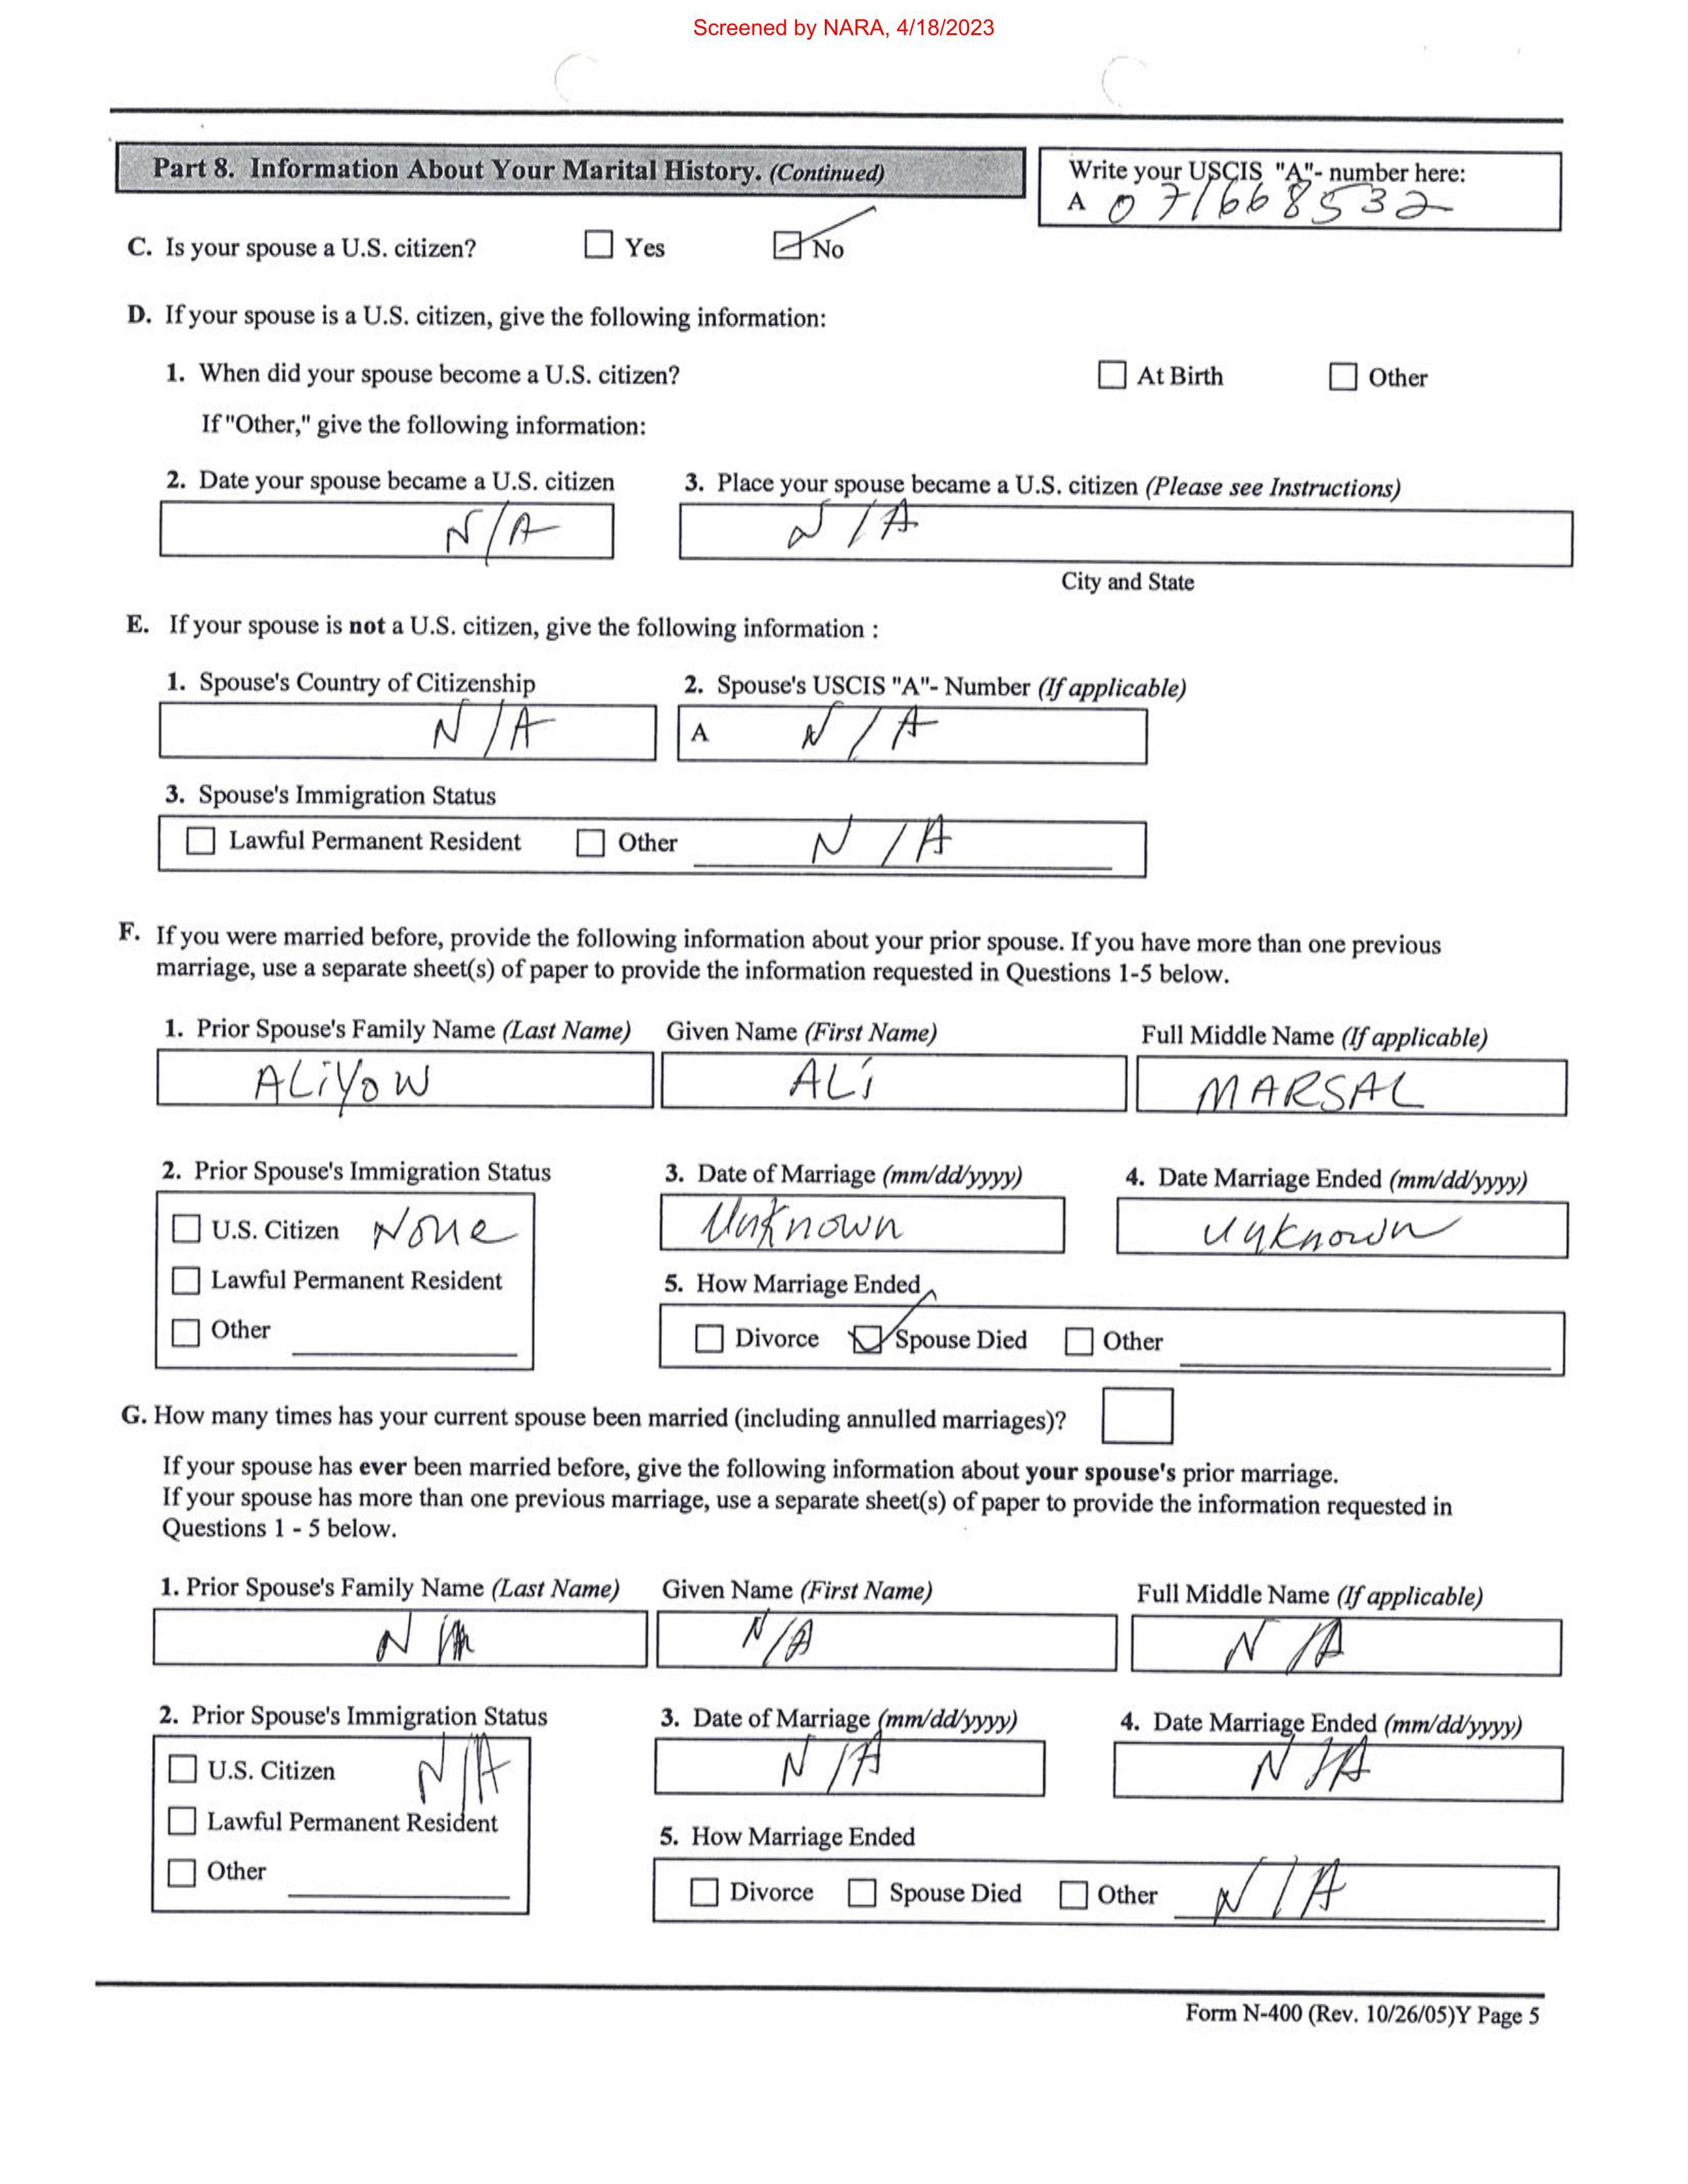 Screened by NARA, 4/18/2023
Part 8. Information About Your Marital History. (Continued)
Write your USCIS "A"- number here:
A 071668532
C. Is your spouse a U.S. citizen? Yes No
D. If your spouse is a U.S. citizen, give the following information:
1. When did your spouse become a U.S. citizen? At Birth Other
If "Other," give the following information:
2. Date your spouse became a U.S. citizen 3. Place your spouse became a U.S. citizen (Please see Instructions)
N/A N/A
City and State
E. If your spouse is not a U.S. citizen, give the following information :
1. Spouse's Country of Citizenship 2. Spouse's USCIS "A"- Number (If applicable)
N/A A N/A
3. Spouse's Immigration Status
Lawful Permanent Resident Other N/A
F. If you were married before, provide the following information about your prior spouse. If you have more than one previous
marriage, use a separate sheet(s) of paper to provide the information requested in Questions 1-5 below.
1. Prior Spouse's Family Name (Last Name) Given Name (First Name) Full Middle Name (If applicable)
ALiYOW ALi MARSAL
2. Prior Spouse's Immigration Status 3. Date of Marriage (mm/dd/yyyy) 4. Date Marriage Ended (mm/dd/yyyy)
U.S. Citizen None Unknown Unknown
Lawful Permanent Resident 5. How Marriage Ended
Other Divorce Spouse Died Other
G. How many times has your current spouse been married (including annulled marriages)?
If your spouse has ever been married before, give the following information about your spouse's prior marriage.
If your spouse has more than one previous marriage, use a separate sheet(s) of paper to provide the information requested in
Questions 1 - 5 below.
1. Prior Spouse's Family Name (Last Name) Given Name (First Name) Full Middle Name (If applicable)
N/A N/A N/A
2. Prior Spouse's Immigration Status 3. Date of Marriage (mm/dd/yyyy) 4. Date Marriage Ended (mm/dd/yyyy)
U.S. Citizen N/A N/A N/A
Lawful Permanent Resident 5. How Marriage Ended
Other Divorce Spouse Died Other N/A
Form N-400 (Rev. 10/26/05)Y Page 5